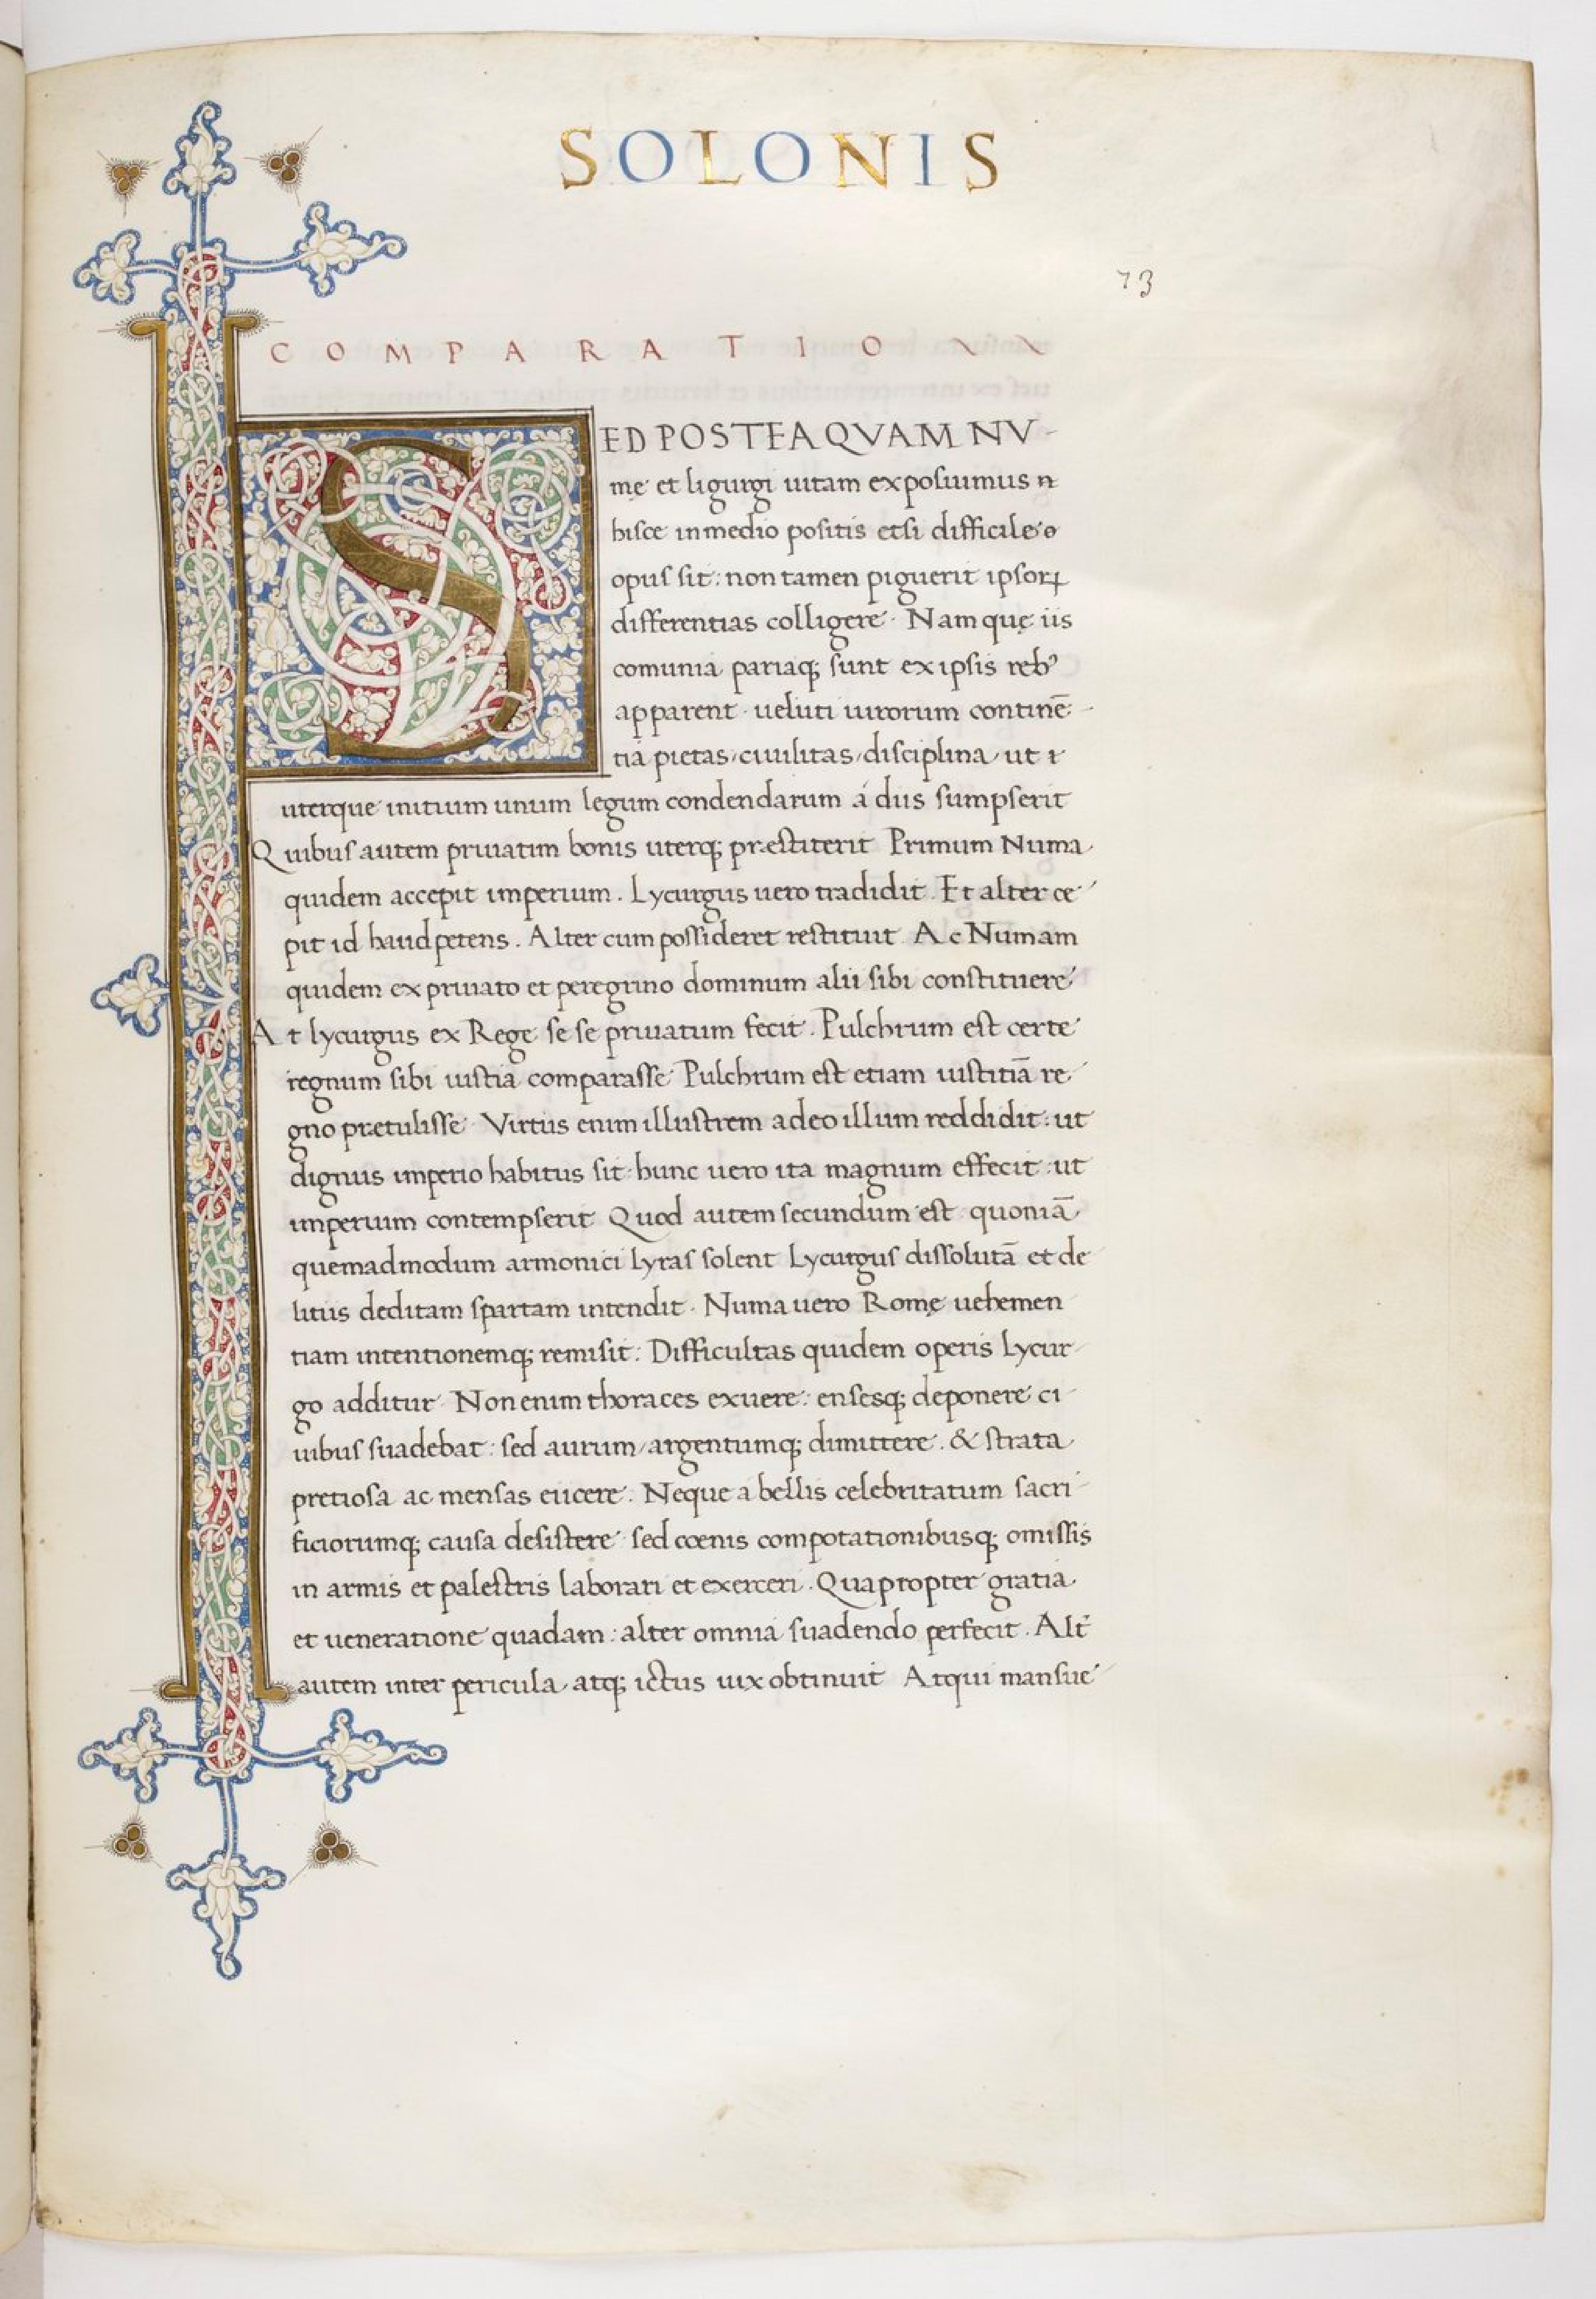 SOLONIS
73
COMPARATIO
SED POSTEAQVAM NV-
mę et ligurgi uitam exposuimus n
bisce in medio positis etsi difficile o
opus sit: non tamen piguerit ipsoꝝ
differentias colligere. Nam quę iis
comunia pariaq; sunt ex ipsis reb⁹
apparent. ueluti uirorum continē-
tia pietas, ciuilitas, disciplina, ut i
uterque initium unum legum condendarum á diis sumpserit
Quibus autem priuatim bonis uterq; præstiterit Primum Numa
quidem accepit imperium. Lycurgus uero tradidit. Et alter ce
pit id haud petens. Alter cum possideret restituit Ac Numam
quidem ex priuato et peregrino dominum alii sibi constituere
At lycurgus ex Rege se se priuatum fecit. Pulchrum est certe
regnum sibi iustia comparasse Pulchrum est etiam iustitiā re
gno prætulisse Virtus enim illustrem adeo illum reddidit: ut
dignus imperio habitus sit: hunc uero ita magnum effecit: ut
imperium contempserit Quod autem secundum est quoniā
quemadmodum armonici lyras solent Lycurgus dissolutā et de
litiis deditam spartam intendit. Numa uero Romę uehemen
tiam intentionemq; remisit: Difficultas quidem operis Lycur-
go additur Non enim thoraces exuere: ensesq; deponere ci-
uibus suadebat: sed aurum, argentumq; dimittere. & strata
pretiosa ac mensas eiicere. Neque a bellis celebritatum sacri-
ficiorumq; causa desistere sed cœnis compotationibusq; omissis
in armis et palestris laborari et exerceri. Quapropter gratia
et ueneratione quadam: alter omnia suadendo perfecit. Alt̃
autem inter pericula, atq; ictus uix obtinuit Atqui mansue